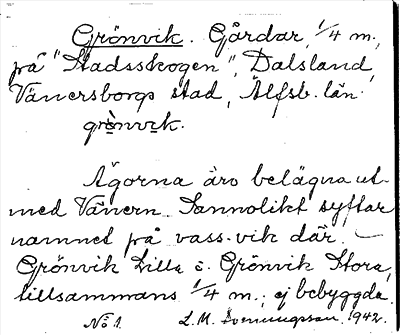 Grönvik. Gårdar, 1/4 m.,
på "Stadsskogen", Dalsland,
Vänersborgs stad, Älfsb. län.
grònvik.
Ägorna äro belägna ut-
med Vänern. Sannolikt syftar
namnet på vass-vik där. —
Grönvik Lilla o. Grönvik Stora,
tillsammans 1/4 m.; ej bebyggda.
No 1. L. M. Svenungsson. 1942.